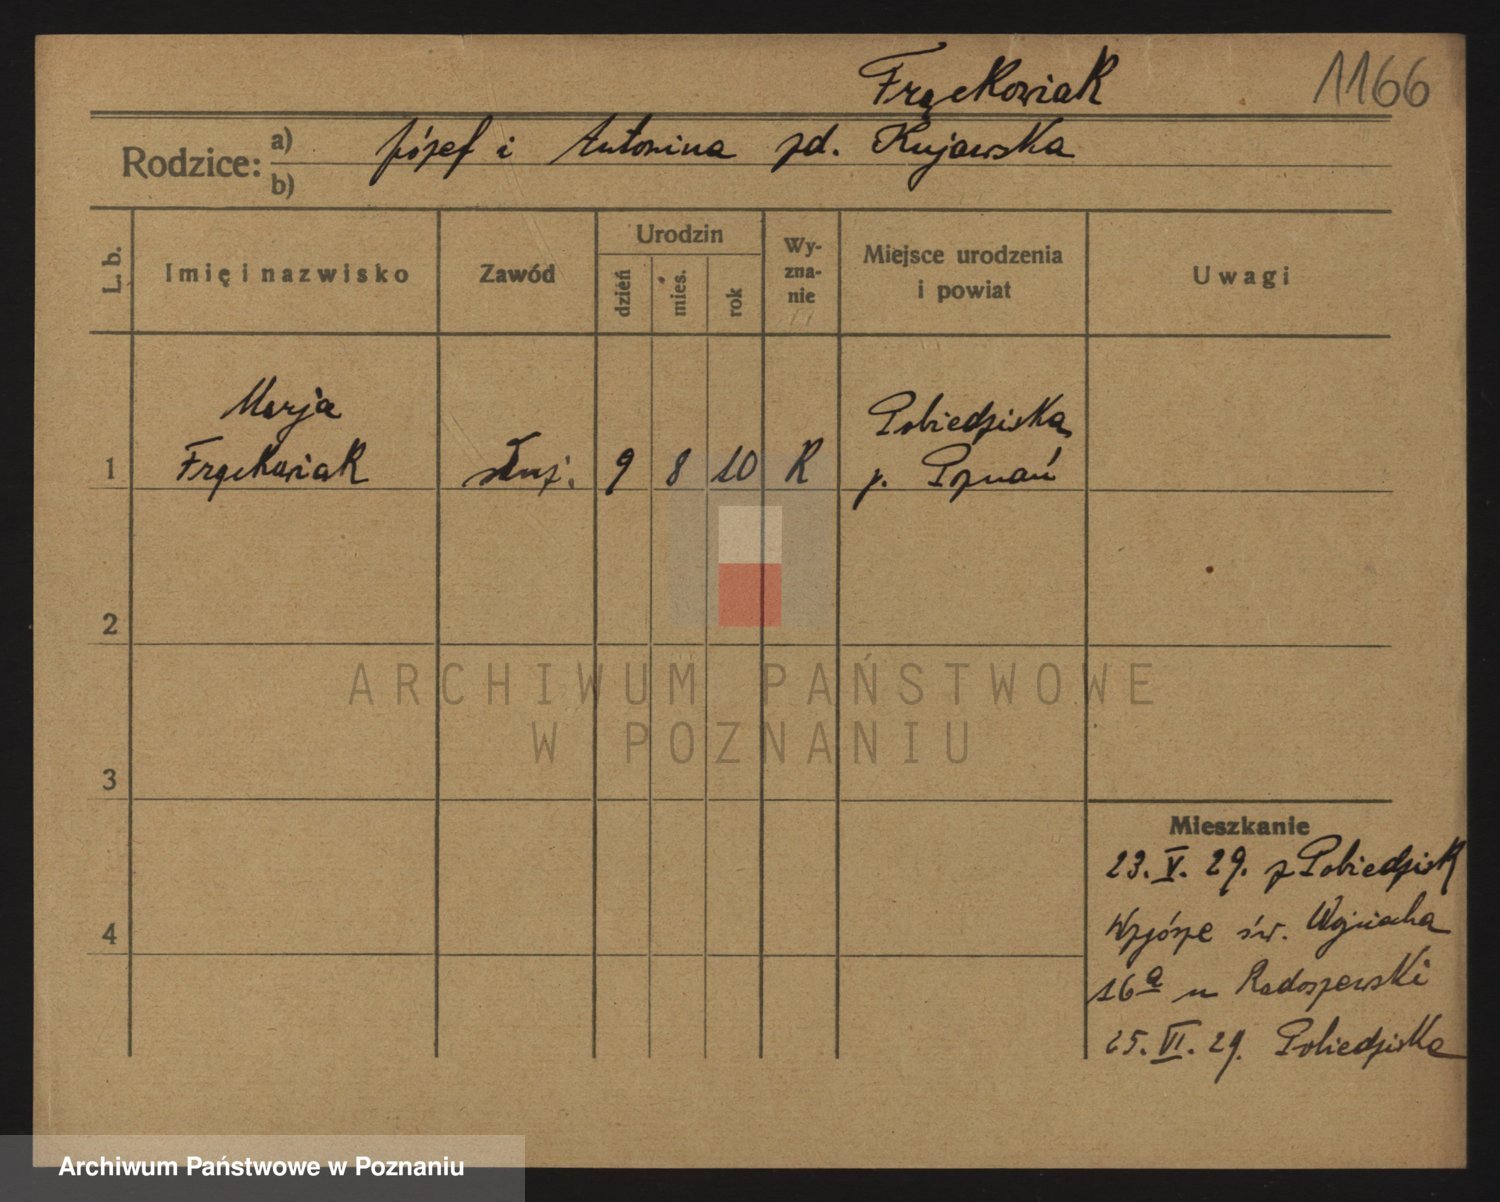 Frąckowiak
1166
Rodzice: a) Józef i Antonina zd. Kujawska
b)
L. b. Imię i nazwisko Zawód Urodzin dzień mies. rok Wyznanie Miejsce urodzenia i powiat Uwagi
Marja Pobiedziska
1 Frąckowiak służ. 9 8 10 R p. Poznań
2
3
4
Mieszkanie
23. V. 29. z Pobiedzisk
Wzgórze św. Wojciecha
16a u Radoszewski
25. VI. 29. Pobiedziska
ARCHIWUM PAŃSTWOWE
W POZNANIU
Archiwum Państwowe w Poznaniu